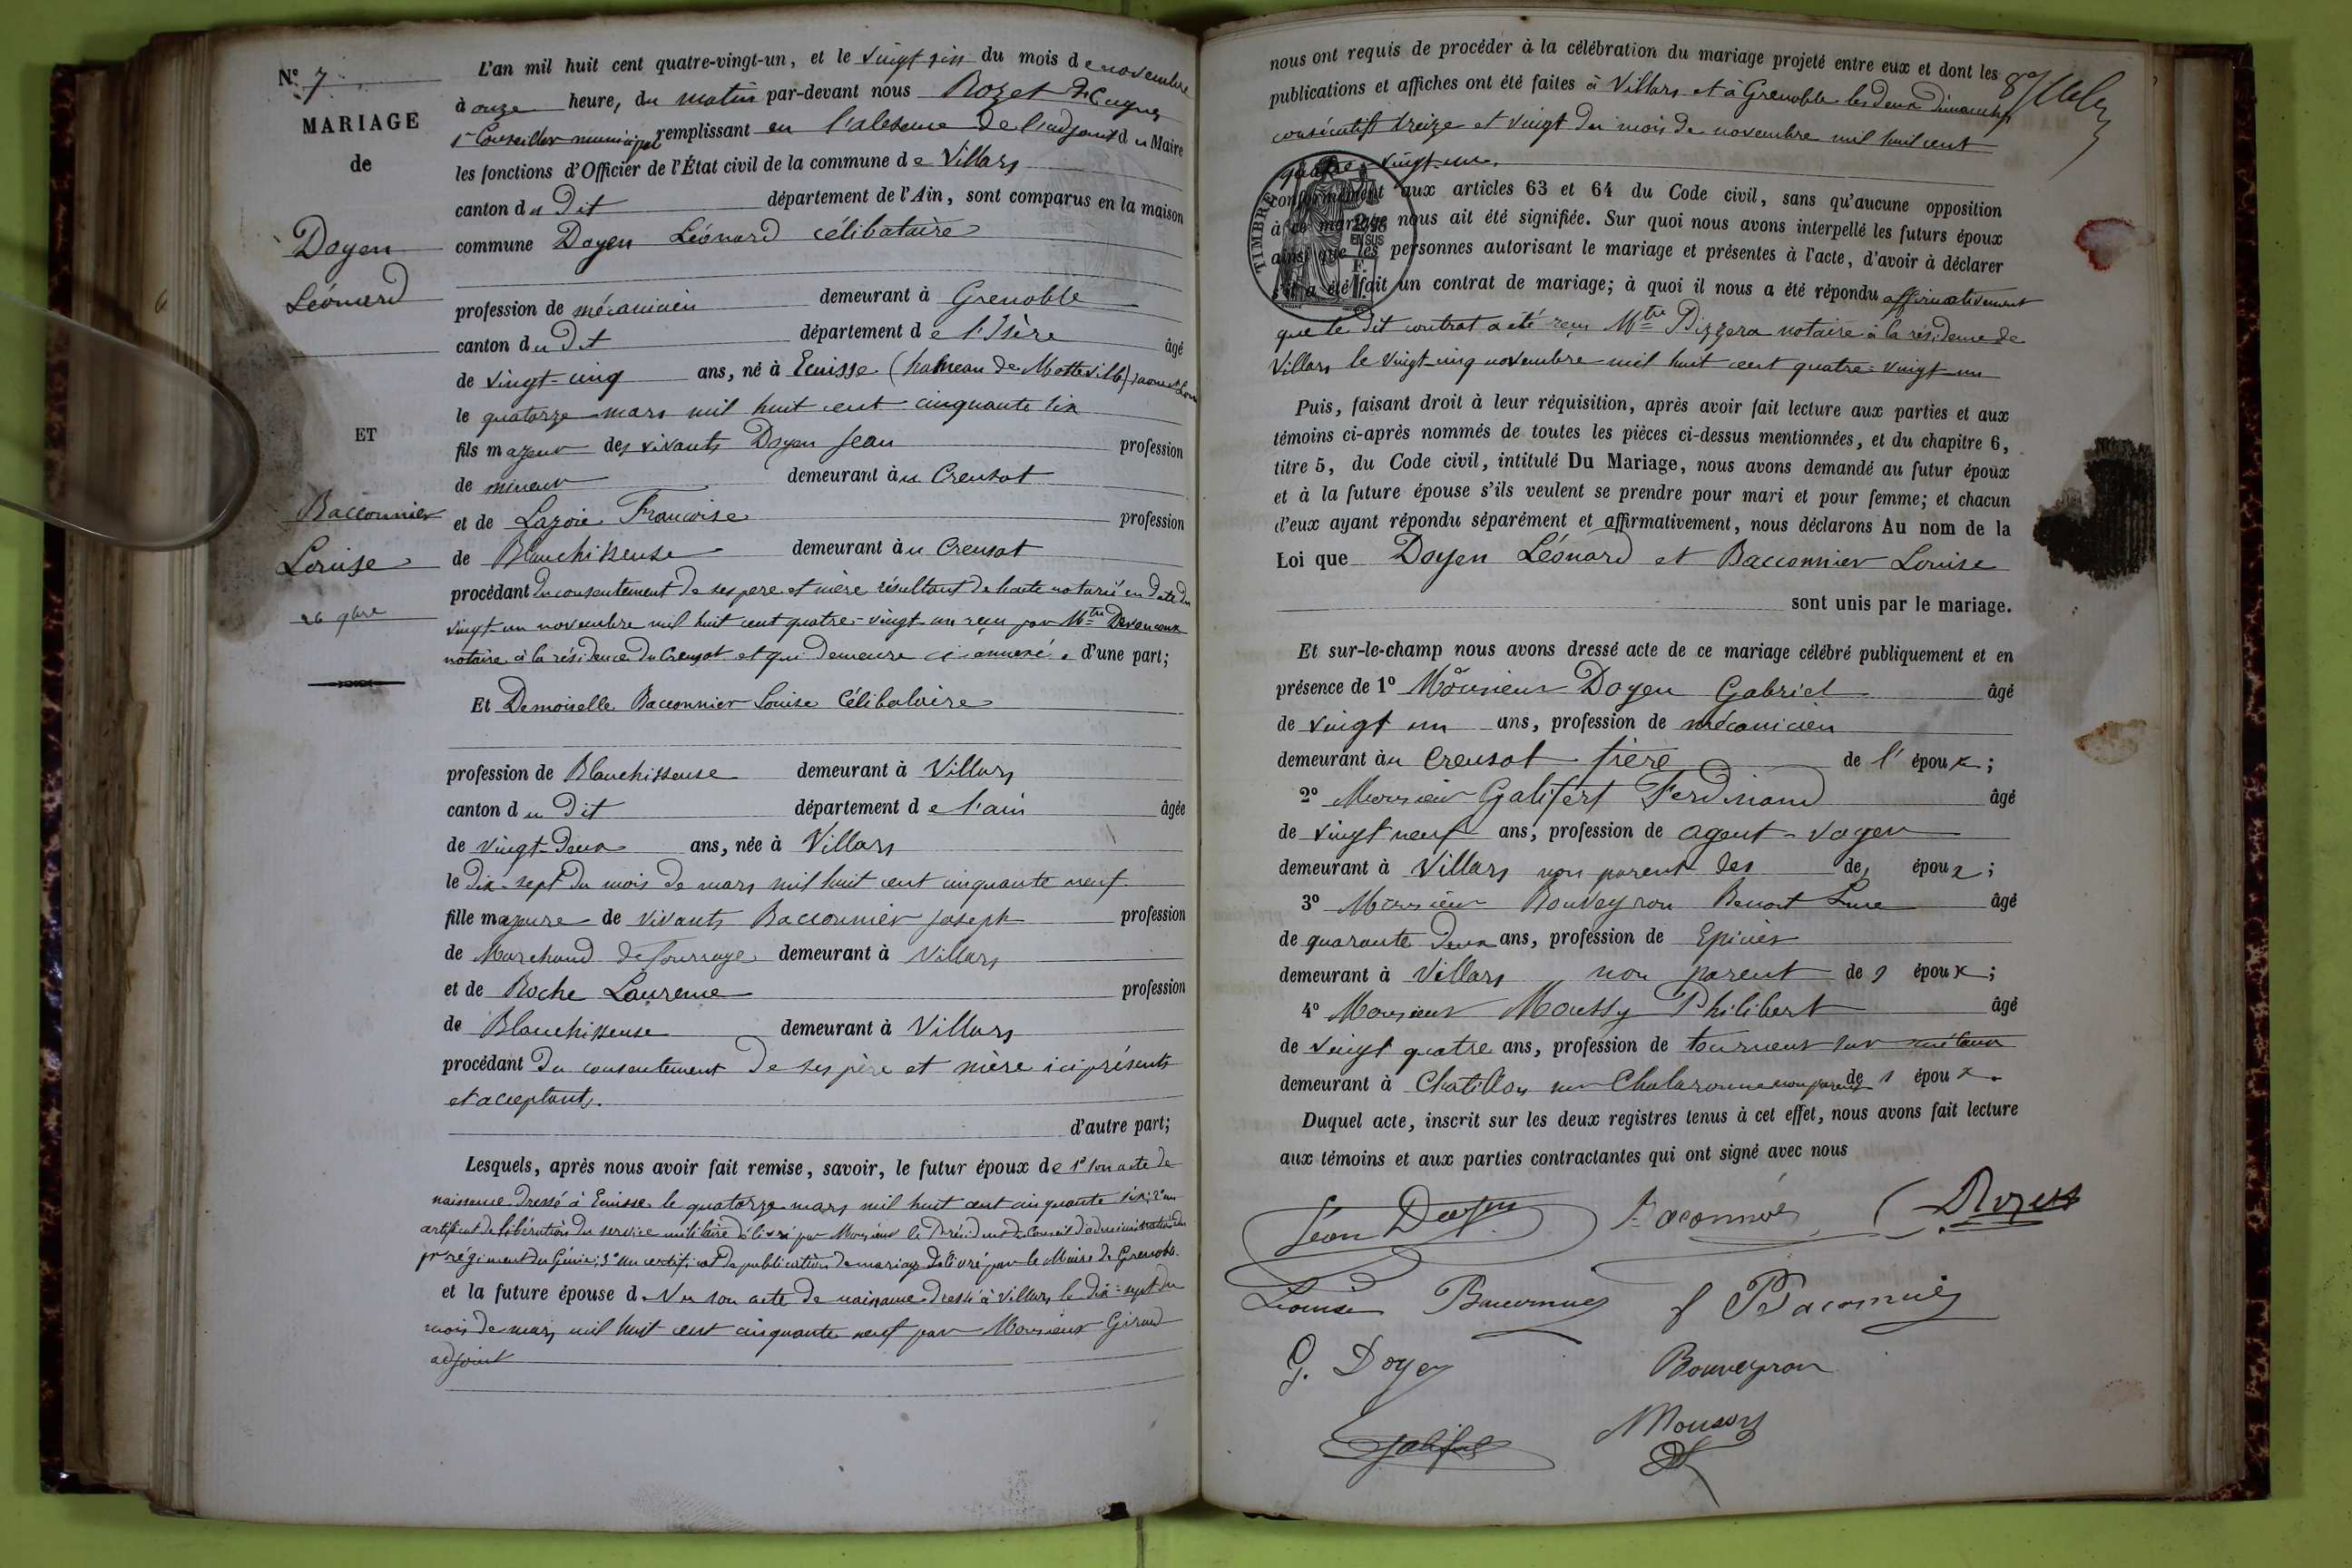 N° 7
MARIAGE
de
Doyen
Léonard
ET
Bacconnier
Louise
26 9bre
L'an mil huit cent quatre-vingt-un, et le vingt six du mois de novembre
à onze heure, du matin par-devant nous Rozet
1er Conseiller municipal remplissant en l'absence de l'adjoint du Maire
les fonctions d'Officier de l'État civil de la commune de Villars
canton du dit département de l'Ain, sont comparus en la maison
commune Doyen Léonard célibataire
profession de mécanicien demeurant à Grenoble
canton du dit département de l'Isère âgé
de vingt-cinq ans, né à Ecuisse (hameau de Motteville) Saone et Loire
le quatorze mars mil huit cent cinquante six
fils majeur des vivants Doyen Jean profession
de mineur demeurant au Creusot
et de Lazoie Francoise profession
de Blanchisseuse demeurant au Creusot
procédant du consentement de ses pere et mère résultant de l'acte notarié en date du
vingt-un novembre mil huit cent quatre-vingt-un reçu par Mtre Devoucoux
notaire à la résidence du Creusot et qui demeure ci annexé. d'une part;
Et Demoiselle Bacconnier Louise Célibataire
profession de Blanchisseuse demeurant à Villars
canton du dit département de l'ain âgée
de vingt-deux ans, née à Villars
le dix-sept du mois de mars mil huit cent cinquante neuf
fille majeure de vivants Bacconnier Joseph profession
de Marchand de fourrage demeurant à Villars
et de Roche Laurence profession
de Blanchisseuse demeurant à Villars
procédant du consentement de ses père et mère ici présents
et acceptants.
d'autre part;
Lesquels, après nous avoir fait remise, savoir, le futur époux de 1° son acte de
naissance dressé à Ecuisse le quatorze mars mil huit cent cinquante six; 2° un
certificat de libération du service militaire délivré par Monsieur le Président du Conseil d'administration du
1er régiment du Génie; 3° un certificat de publication de mariage délivré par le Maire de Grenoble.
et la future épouse d. Vu son acte de naissance dressé à Villars le dix-sept du
mois de mars mil huit cent cinquante neuf par Monsieur Giraud
adjoint
nous ont requis de procéder à la célébration du mariage projeté entre eux et dont les
publications et affiches ont été faites à Villars et à Grenoble les deux dimanches
consécutifs treize et vingt du mois de novembre mil huit cent
quatre-vingt-un.
conformément aux articles 63 et 64 du Code civil, sans qu'aucune opposition
à ce mariage nous ait été signifiée. Sur quoi nous avons interpellé les futurs époux
ainsi que les personnes autorisant le mariage et présentes à l'acte, d'avoir à déclarer
s'il a été fait un contrat de mariage; à quoi il nous a été répondu affirmativement
que le dit contrat a été reçu Mtre Pizzera notaire à la résidence de
Villars le vingt-cinq novembre mil huit cent quatre-vingt-un
TIMBRE
EN SUS
Puis, faisant droit à leur réquisition, après avoir fait lecture aux parties et aux
témoins ci-après nommés de toutes les pièces ci-dessus mentionnées, et du chapitre 6,
titre 5, du Code civil, intitulé Du Mariage, nous avons demandé au futur époux
et à la future épouse s'ils veulent se prendre pour mari et pour femme; et chacun
d'eux ayant répondu séparément et affirmativement, nous déclarons Au nom de la
Loi que Doyen Léonard et Bacconnier Louise
sont unis par le mariage.
Et sur-le-champ nous avons dressé acte de ce mariage célébré publiquement et en
présence de 1° Monsieur Doyen Gabriel âgé
de vingt un ans, profession de mécanicien
demeurant au Creusot frère de l' époux;
2° Monsieur Galifert Ferdinand âgé
de vingt neuf ans, profession de agent-voyer
demeurant à Villars non parent des de, époux;
3° Monsieur Bouveyron Benoit Luc âgé
de quarante deux ans, profession de Epicier
demeurant à Villars non parent des époux;
4° Monsieur Moussy Philibert âgé
de vingt quatre ans, profession de tourneur sur métaux
demeurant à Chatillon sur Chalaronne non parent des époux.
Duquel acte, inscrit sur les deux registres tenus à cet effet, nous avons fait lecture
aux témoins et aux parties contractantes qui ont signé avec nous
Léon Doyen Baconnier Rozet
Louise Bacconnier f Baconnier
G. Doyen Bouveyron
Galifert Moussy